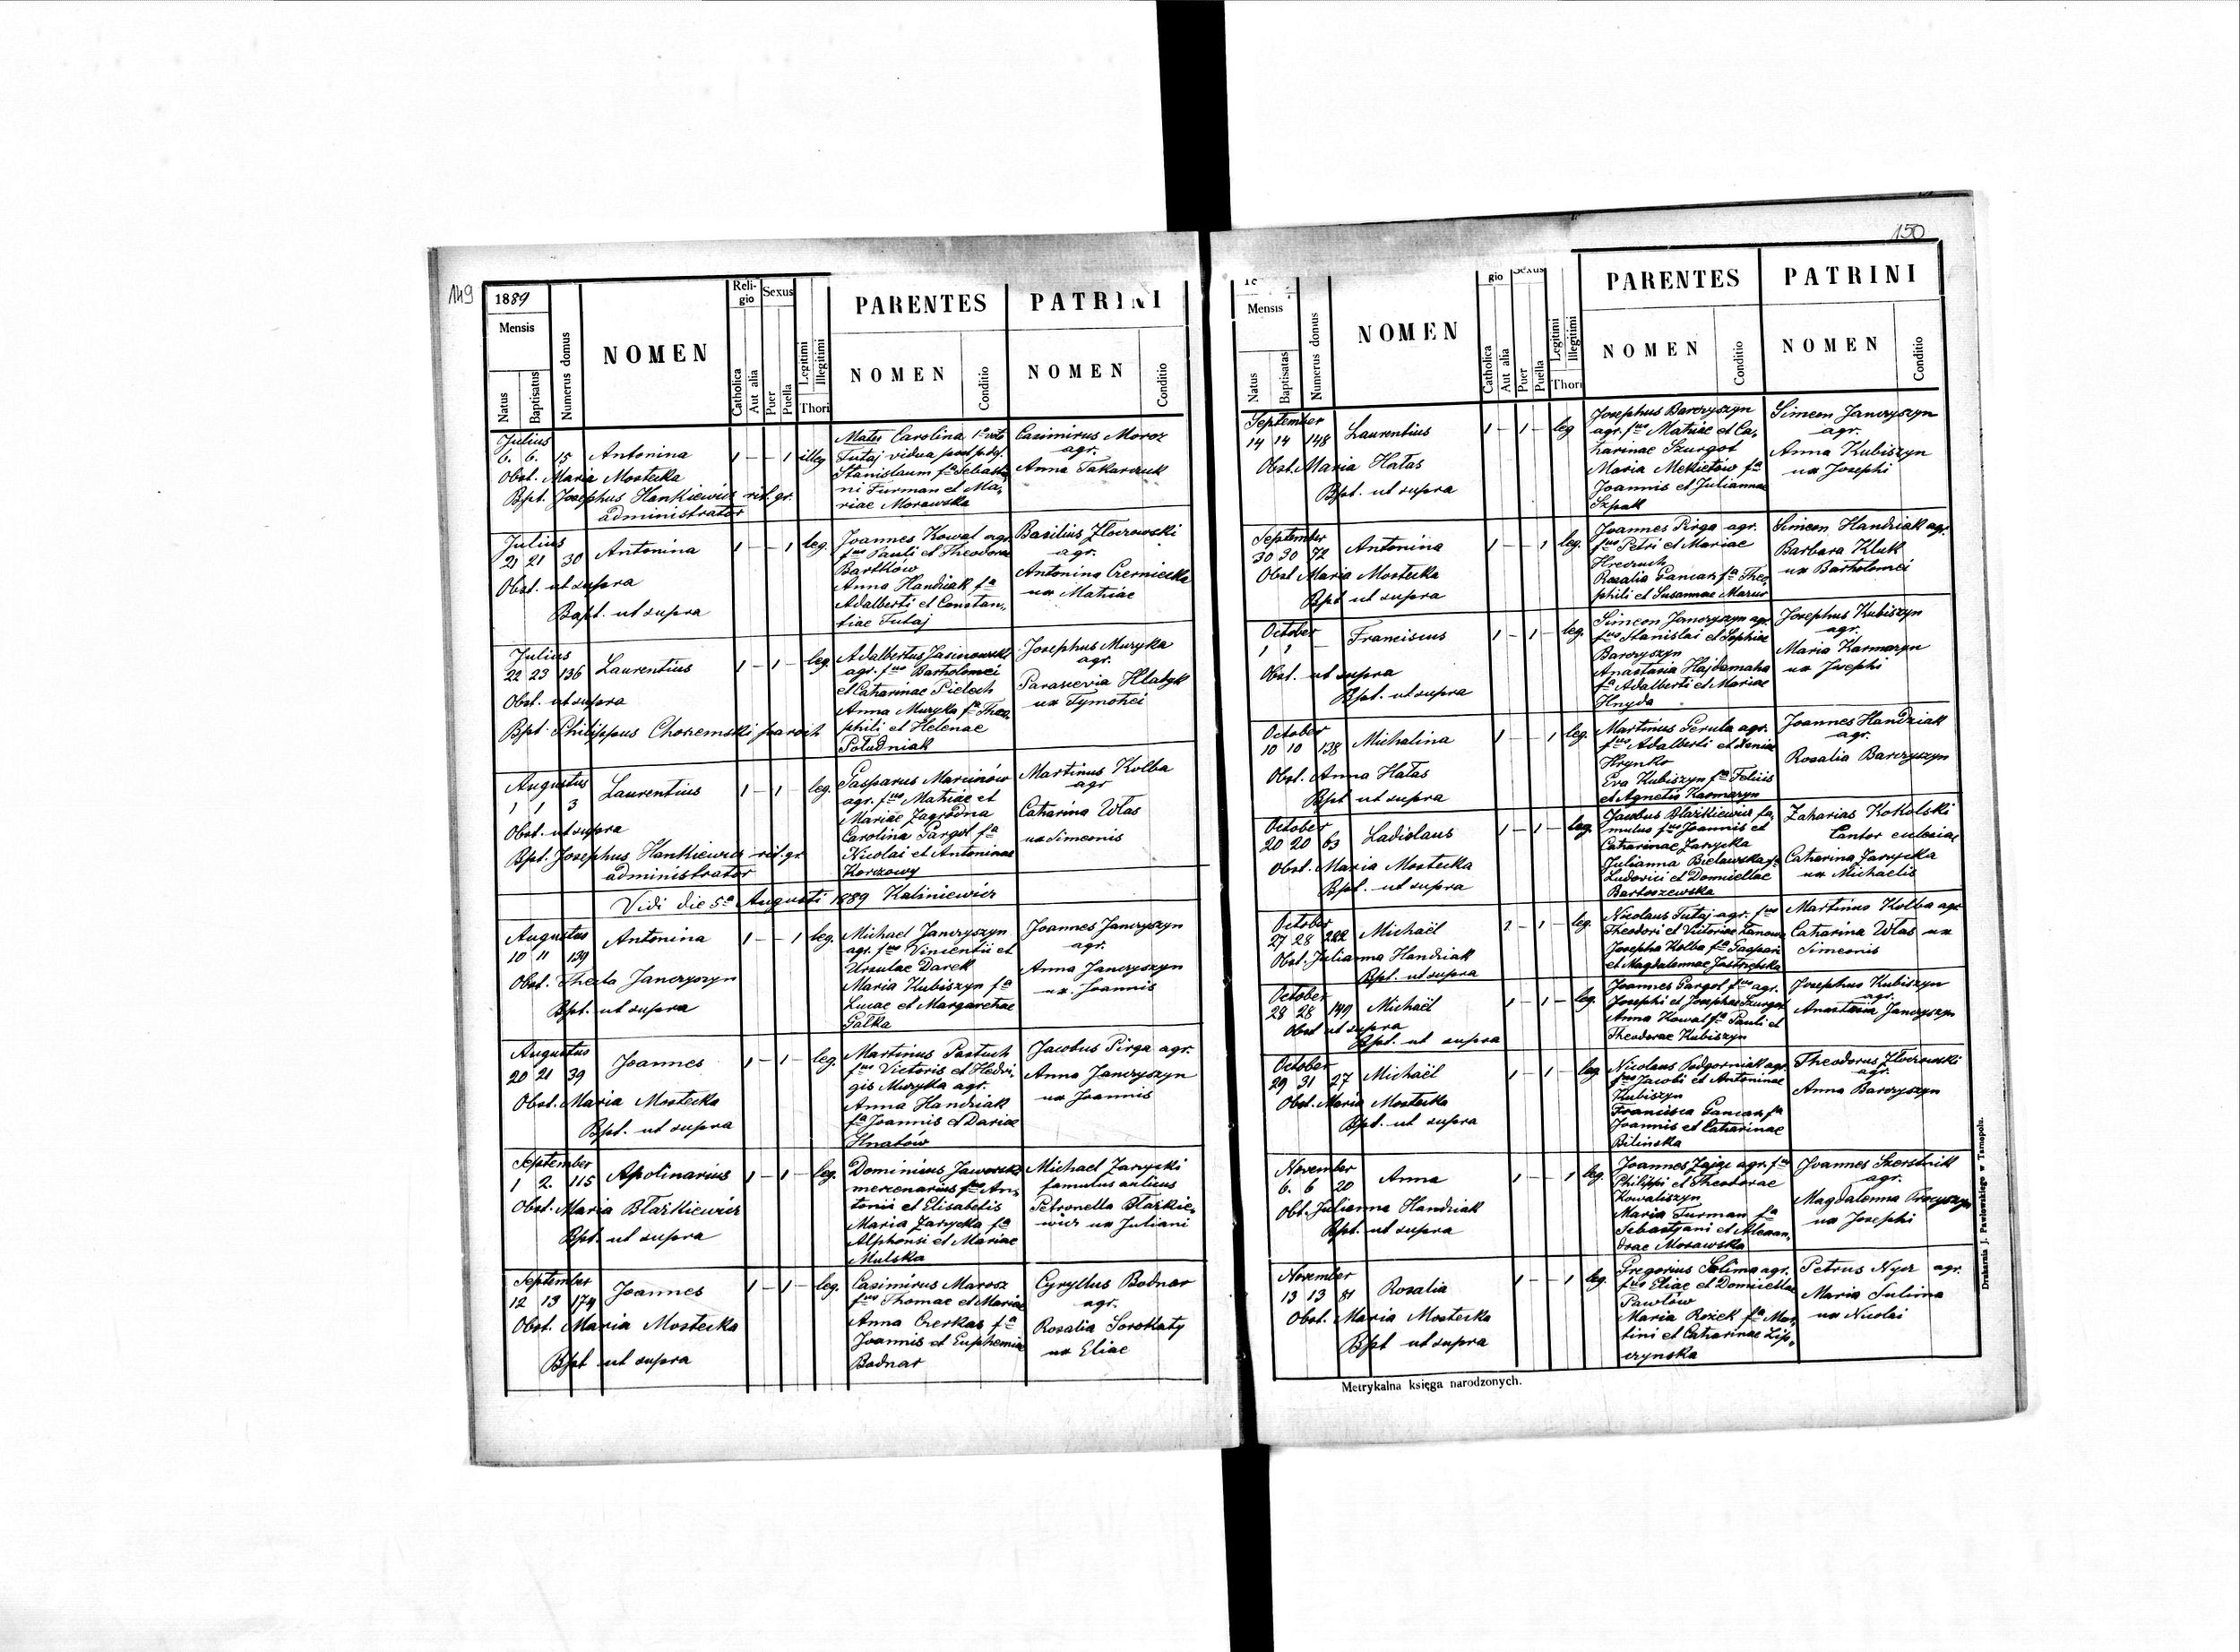 149
1889
Mensis
Natus
Baptisatus
Numerus domus
NOMEN
Religio
Catholica
Aut alia
Sexus
Puer
Puella
Legitimi
Illegitimi
Thori
PARENTES
NOMEN
Conditio
PATRINI
NOMEN
Conditio
Julius
6. 6. 15 Antonina 1 — — 1 illeg
Obst. Maria Mostecka
Bpt. Josephus Hankiewicz rit. gr.
administrator
Mater Carolina 1º voto
Tutaj vidua post
Stanislaum fª Sebastia
ni Furman et Ma,
riae Morawska
Casimirus Moroz
agr.
Anna Takarczuk
Julius
21 21 30 Antonina 1 — — 1 leg.
Obst. ut supra
Bapt. ut supra
Joannes Kowal agr.
fus Pauli et Theodorae
Bartków
Anna Handziak fª
Adalberti et Constan,
tiae Tutaj
Basilius Złoczowski
agr.
Antonina Czerniecka
ux Mathiae
Julius
22 23 136 Laurentius 1 — 1 — leg.
Obst. ut supra
Bpt. Philippus Chozemski paroch
Adalbertus Jasinowski
agr. fus Bartholomei
et Catharinae Pielech
Anna Muzyka fª Theo,
phili et Helenae
Południak
Josephus Muzyka
agr.
Parascevia Hładyk
ux Tymothei
Augustus
1 1 3 Laurentius 1 — 1 — leg.
Obst. ut supra
Bpt. Josephus Hankiewicz rit. gr.
administrator
Gasparus Marcinów
agr. fus Mathiae et
Mariae Zagrodna
Carolina Gargol fª
Nicolai et Antoninae
Korczowy
Martinus Kolba
agr
Catharina Włas
ux Simeonis
Vidi die 5ª Augusti 1889 Kaliniewicz
Augustus
10 11 139 Antonina 1 — — 1 leg.
Obst. Thecla Janczyszyn
Bpt. ut supra
Michael Janczyszyn
agr. fus Vincentii et
Ursulae Darek
Maria Kubiszyn fª
Lucae et Margarethae
Gałka
Joannes Janczyszyn
agr.
Anna Janczyszyn
ux. Joannis
Augustus
20 21 39 Joannes 1 — 1 — leg.
Obst. Maria Mostecka
Bpt. ut supra
Martinus Pastuch
fus Victoris et Hedvi,
gis Muzyka agr.
Anna Handziak
fª Joannis et Dariae
Hnatów
Jacobus Pirga agr.
Anna Janczyszyn
ux Joannis
September
1 2. 115 Apolinarius 1 — 1 — leg.
Obst. Maria Błażkiewicz
Bpt. ut supra
Dominicus Jaworski
mercenarius fus An,
tonii et Elisabetis
Maria Zarycka fª
Alphonsi et Mariae
Mulska
Michael Zarycki
famulus aulicus
Petronella Błażkie,
wicz ux Juliani
September
12 13 174 Joannes 1 — 1 — leg.
Obst. Maria Mostecka
Bpt ut supra
Casimirus Marosz
fus Thomae et Mariae
Anna Czerkas fª
Joannis et Euphemiae
Bodnar
Cyryllus Bodnar
agr.
Rosalia Sorokaty
ux Eliae
150
Mensis
Natus
Baptisatas
Numerus domus
NOMEN
gio
Catholica
Aut alia
Sexus
Puer
Puella
Legitimi
Illegitimi
Thori
PARENTES
NOMEN
Conditio
PATRINI
NOMEN
Conditio
September
14 14 148 Laurentius 1 — 1 — leg
Obst. Maria Hałas
Bpt. ut supra
Josephus Barczyszyn
agr. fus Mathiae et Ca,
tharinae Szurgot
Maria Mekietów fª
Joannis et Juliannae
Szpak
Simeon Janczyszyn
agr.
Anna Kubiszyn
ux Josephi
September
30 30 72 Antonina 1 — — 1 leg.
Obst Maria Mostecka
Bpt ut supra
Joannes Pirga agr.
fus Petri et Mariae
Hreczuch
Rosalia Gancarz fª Theo,
phili et Susannae Mazur
Simeon Handziak agr.
Barbara Kluk
ux Bartholomei
October
1 1 — Franciscus 1 — 1 — leg.
Obst. ut supra
Bpt. ut supra
Simeon Janczyszyn agr.
fus Stanislai et Sophiae
Barczyszyn
Anastasia Hajdamaha
fª Adalberti et Mariae
Hnyda
Josephus Kubiszyn
agr.
Maria Karmazyn
ux Josephi
October
10 10 138 Michalina 1 — — 1 leg.
Obst. Anna Hałas
Bpt ut supra
Martinus Gerula agr.
fus Adalberti et Xeniae
Hrynko
Eva Kubiszyn fª Felicis
et Agnetis Karmazyn
Joannes Handziak
agr.
Rosalia Barczyszyn
October
20 20 63 Ladislaus 1 — 1 — leg.
Obst. Maria Mostecka
Bpt. ut supra
Jacobus Błażkiewicz fa,
mulus fus Joannis et
Catharinae Zarycka
Julianna Bielawska fª
Ludovici et Domicellae
Bartoszewska
Zaharias Kokolski
Cantor ecclesiae
Catharina Zarycka
ux Michaelis
October
27 28 222 Michaël 1 — 1 — leg.
Obst. Julianna Handziak
Bpt. ut supra
Nicolaus Tutaj agr. fus
Theodori et Victoriae
Josepha Kolba fª Gaspari
et Magdalennae Jastrzębska
Martinus Kolba agr
Catharina Włas ux
Simeonis
October
28 28 149 Michaël 1 — 1 — leg.
Obst ut supra
Bpt. ut supra
Joannes Gargol fus agr.
Josephi et Josephae Szurgot
Anna Kowal fª Pauli et
Theodorae Kubiszyn
Josephus Kubiszyn
agr.
Anastasia Janczyszyn
October
29 31 27 Michaël 1 — 1 — leg
Obst. Maria Mostecka
Bpt. ut supra
Nicolaus Podgorniak agr.
fus Jacobi et Antoninae
Kubiszyn
Francisca Gancarz fª
Joannis et Catharinae
Bilinska
Theodorus Złoczowski
agr.
Anna Barczyszyn
November
6. 6 20 Anna 1 — — 1 leg.
Obt. Julianna Handziak
Bpt. ut supra
Joannes Zając agr. fus
Philippi et Theodorae
Kowaliszyn
Maria Furman fª
Sebastyani et Alexan,
drae Morawska
Joannes Szerstnik
agr.
Magdalenna Procyszyn
ux Josephi
November
13 13 81 Rosalia 1 — — 1 leg.
Obst. Maria Mostecka
Bpt ut supra
Gregorius Sulima agr.
fus Eliae et Domicellae
Pawlów
Maria Rożek fª Mar,
tini et Catharinae Lip,
czynska
Petrus Nycz agr.
Maria Sulima
ux Nicolai
Metrykalna księga narodzonych.
Drukarnia J. Pawłowskiego w Tarnopolu.